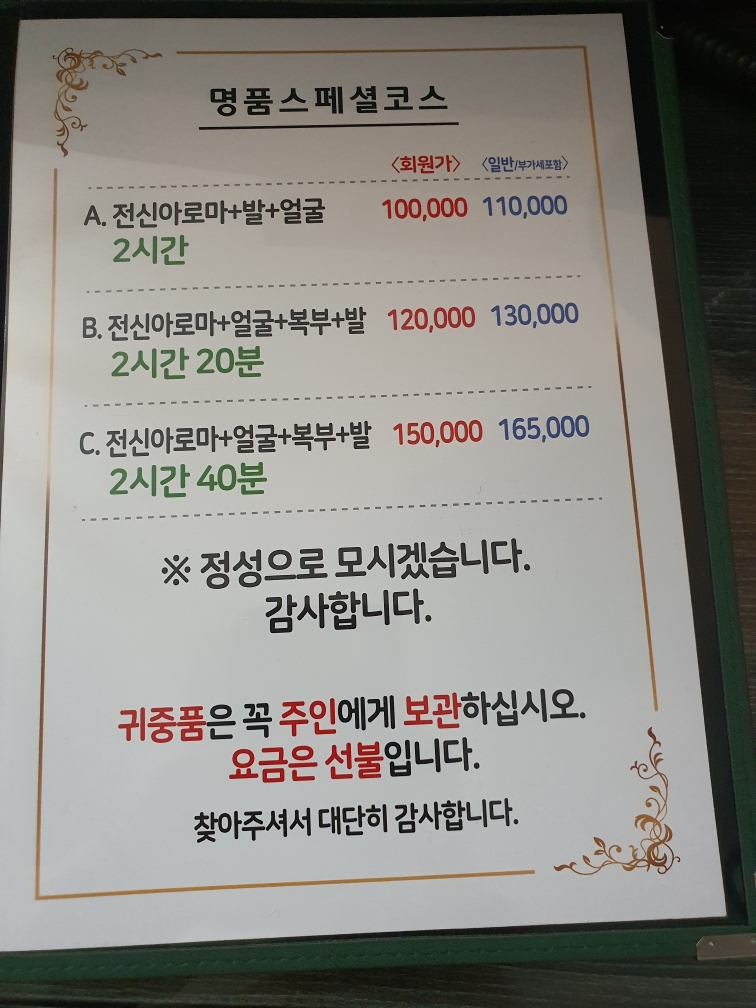 명품스페셜코스
<회원가> <일반/부가세포함>
A. 전신아로마+발+얼굴 100,000 110,000
2시간
B. 전신아로마+얼굴+복부+발 120,000 130,000
2시간 20분
C. 전신아로마+얼굴+복부+발 150,000 165,000
2시간 40분
※ 정성으로 모시겠습니다.
감사합니다.
귀중품은 꼭 주인에게 보관하십시오.
요금은 선불입니다.
찾아주셔서 대단히 감사합니다.